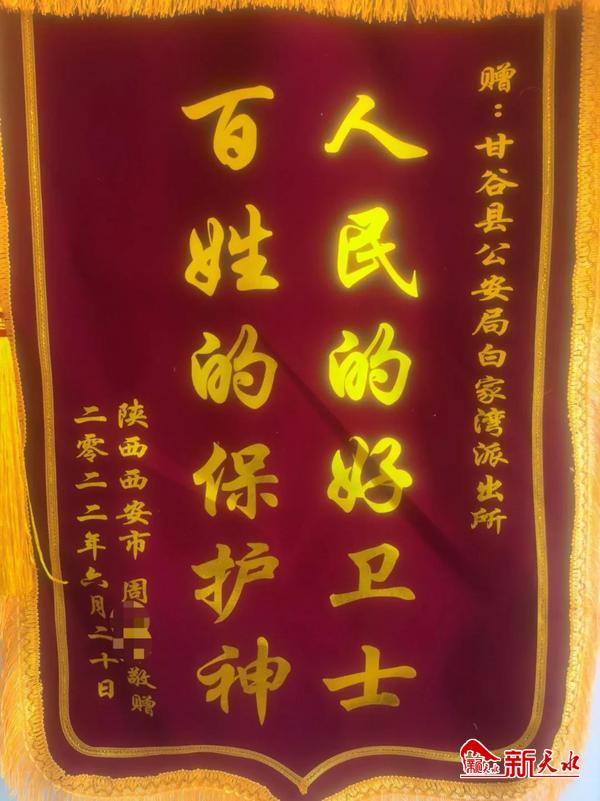 赠：甘谷县公安局白家湾派出所
人民的好卫士
百姓的保护神
陕西西安市 周 敬赠
二零二二年六月二十日
新天水